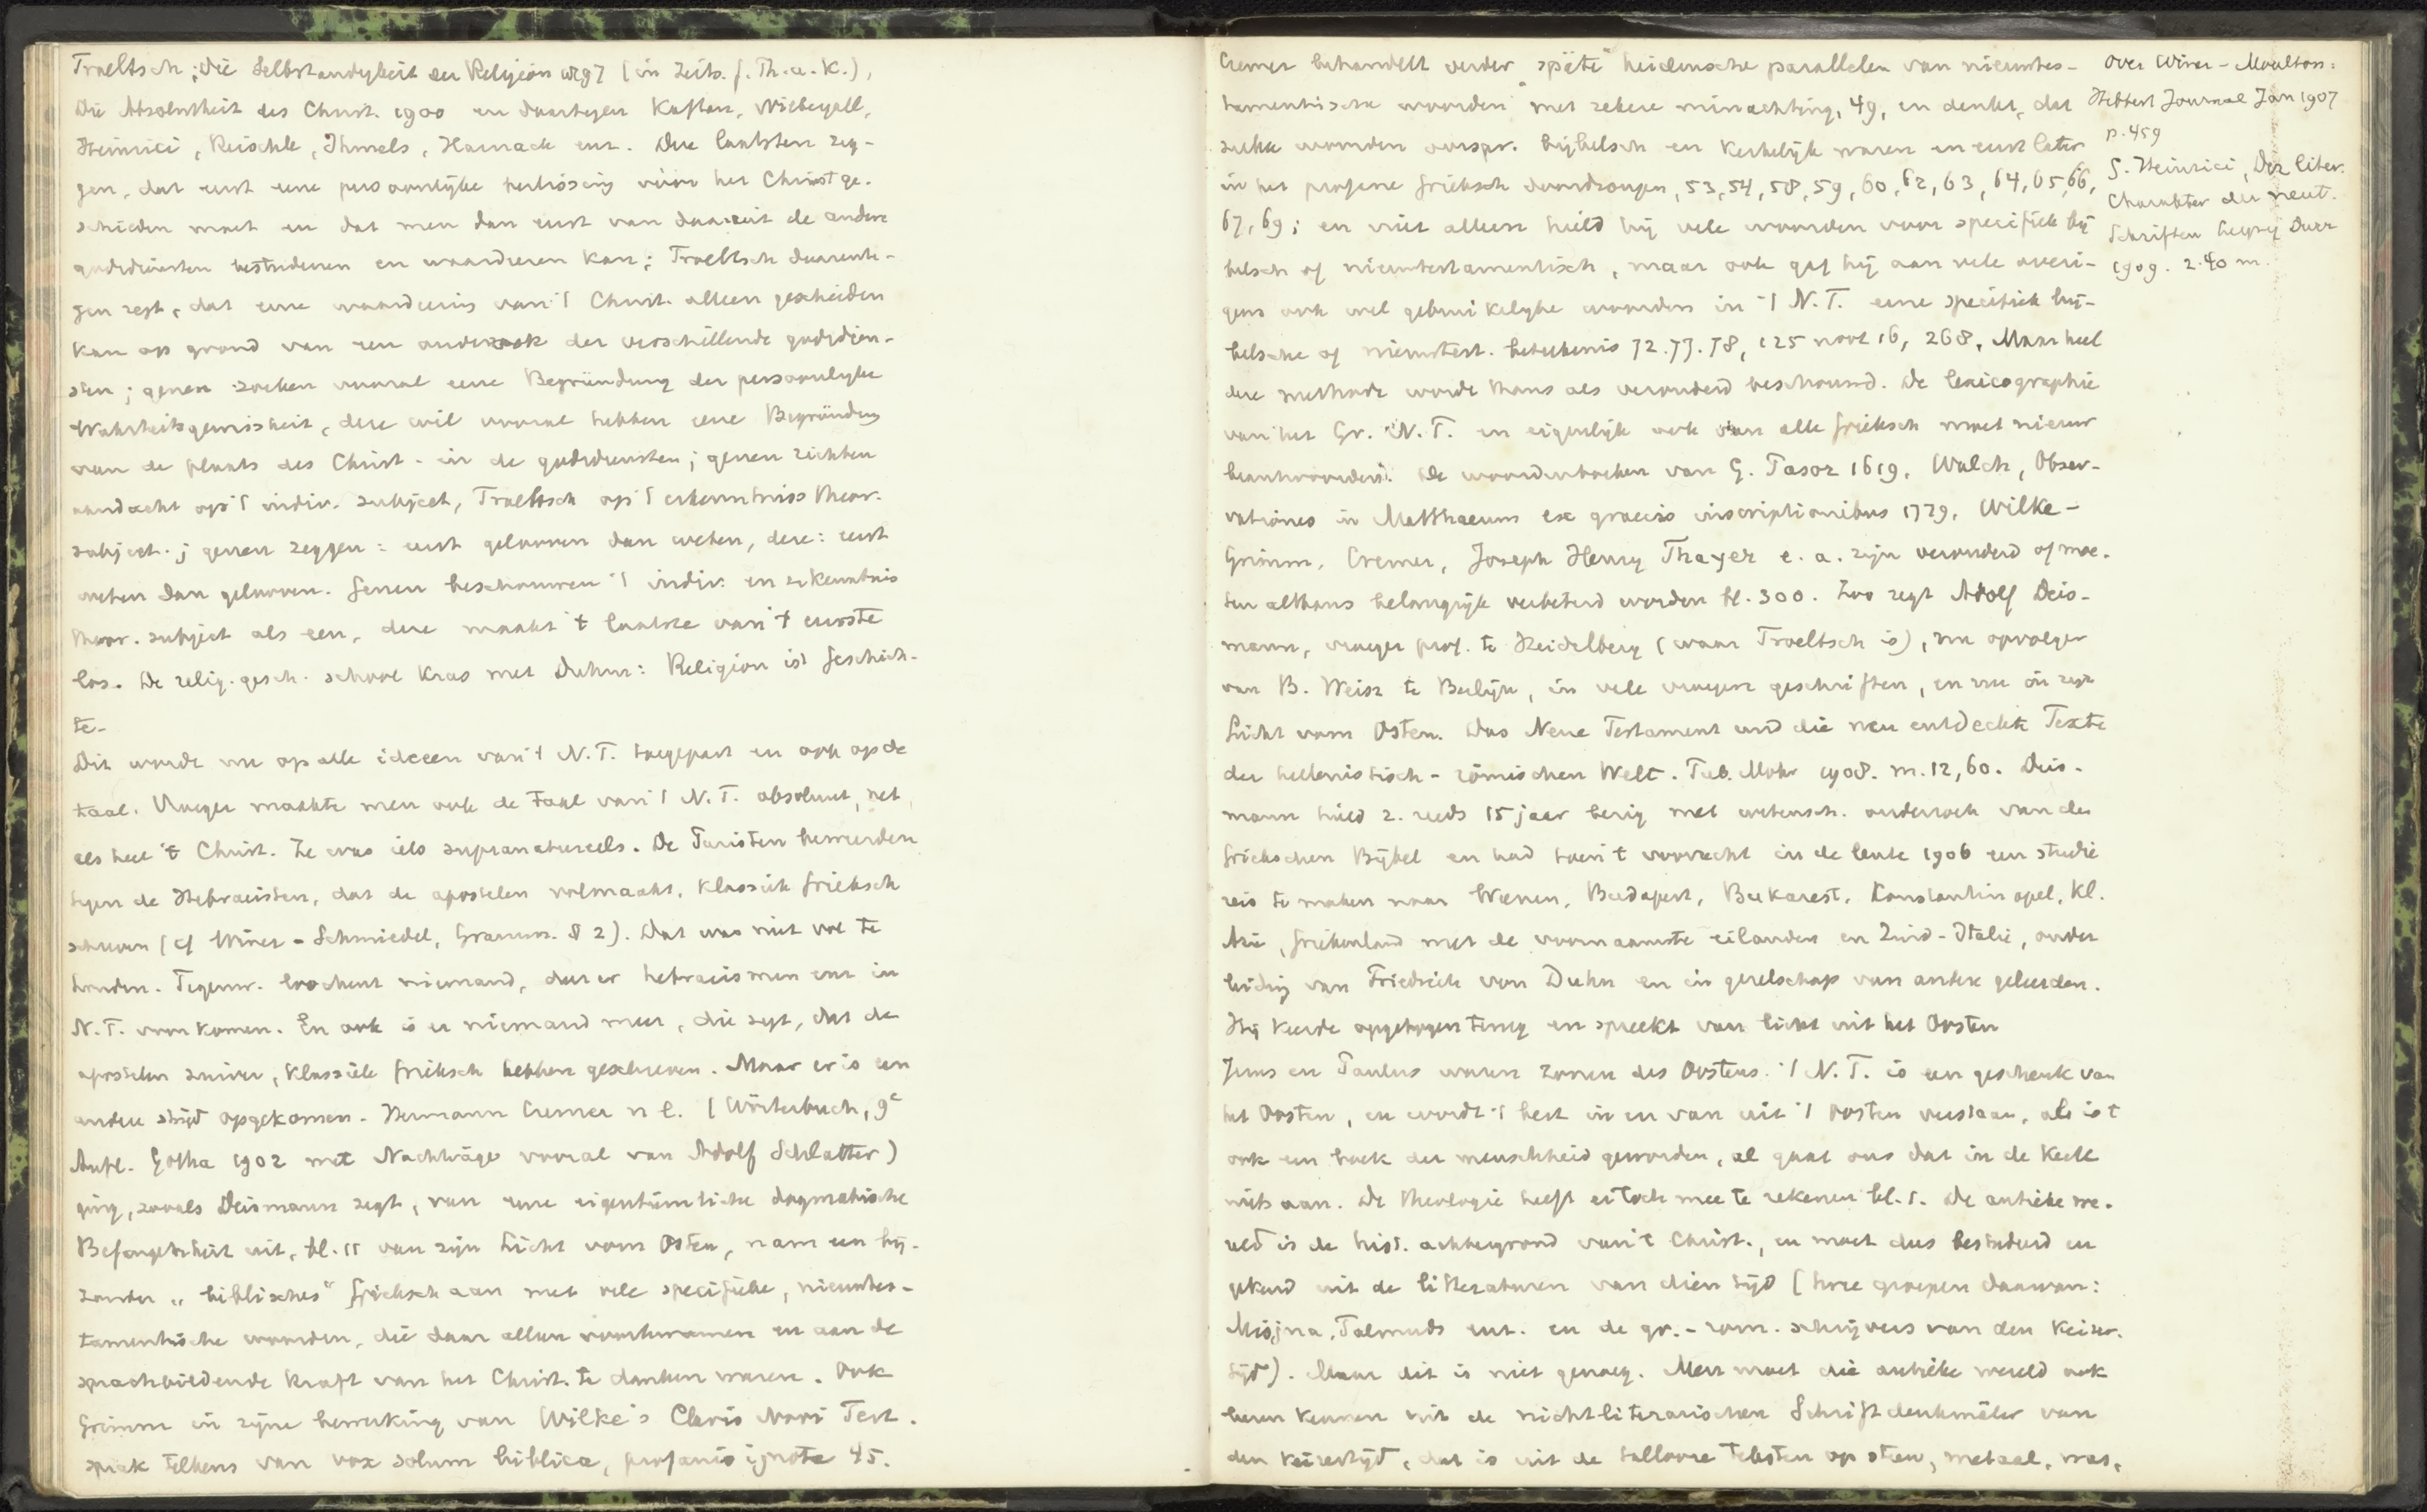 Troeltsch; die Selbstandigkeit der Religion 1897 (in Zeits. f. Th. u. K.),
Die Absolutheit des Christ. 1900 en daartegen Kaftan, Niebergall,
Heinrici, Reischle, Ihmels, Harnack enz. Deze laatsten zeg-
gen, dat eerst eene persoonlijke beslissing vóór het Christ ge-
schieden moet en dat men dan eerst van daaruit de andere
godsdiensten bestudeeren en waardeeren kan; Troeltsch daarente-
gen zegt, dat eene waardeering van 't Christ. alleen geschieden
kan op grond van een onderzoek der verschillende godsdien-
sten; genen zoeken vooral eene Begründung der persoonlijke
Wahrheitsgewissheit, deze wil vooral hebben eene Begründung
van de plaats des Christ. in de godsdiensten; genen richten
aandacht op 't indiv. subject, Troeltsch op 't erkenntniss theor.
subject.; genen zeggen: eerst gelooven dan weten, deze: eerst
weten dan gelooven. Genen beschouwen 't indiv. en erkenntnis
theor. subject als een, deze maakt 't laatste van 't eerste
los. De relig. gesch. school kras met Duhm: Religion ist Geschich-
te.
Dit wordt nu op alle ideeen van 't N.T. toegepast en ook op de
taal. Vroeger maakte men ook de Taal van 't N.T. absoluut, net
als heel 't Christ. Ze was iets supranatureels. De Puristen beweerden
tegen de Hebraeisten, dat de apostelen volmaakt, klassiek Grieksch
schreven (cf Winer-Schmiedel, Gramm. § 2). Dat was niet vol te
houden. Tegenw. loochent niemand, dat er hebraeismen enz in
N.T. voorkomen. En ook is er niemand meer, die zegt, dat de
apostelen zuiver, klassiek Grieksch hebben geschreven. Maar er is een
andere strijd opgekomen. Hermann Cremer n l. (Wörterbuch, 9e
Aufl. Gotha 1902 met Nachträge vooral van Adolf Schlatter)
ging, zooals Deismann zegt, van eene eigentümliche dogmatische
Befangenheit uit, bl. 11 van zijn Licht vom Osten, nam een bij-
zonder „biblisches" Grieksch aan met vele specifieke, nieuwtes-
tamentische woorden, die daar alleen voorkwamen en aan de
sprachbildende Kraft van het Christ. te danken waren. Ook
Grimm in zijne bewerking van Wilke's Clavis Novi Test.
sprak telkens van vox solum biblica, profanis ignota 45.
Cremer behandelt verder „späte" heidensche parallelen van nieuwtes-
tamentische woorden met zekere minachting, 49, en denkt, dat
zulke woorden oorspr. bijbelsch en kerkelijk waren en eerst later
in het profane Grieksch doordrongen, 53, 54, 58, 59, 60, 62, 63, 64, 65, 66,
67, 69; en niet alleen hield hij vele woorden voor specifiek bij
belsch of nieuwtestamentisch, maar ook gaf hij aan vele overi-
gens ook wel gebruikelijke woorden in 't N.T. eene specifiek bij-
belsche of nieuwtest. beteekenis 72. 77. 78, 125 noot 16, 268. Maar heel
deze methode wordt thans als verouderd beschouwd. De lexicographie
van het Gr. N.T. en eigenlijk ook van alle Grieksch moet nieuw
beantwoorden. De woordenboeken van G. Pasor 1619, Walch, Obser-
vationes in Matthaeum ex graecis inscriptionibus 1779, Wilke-
Grimm, Cremer, Joseph Henry Thayer e. a. zijn verouderd of moe-
ten althans belangrijk verbeterd worden bl. 300. Zoo zegt Adolf Deis-
mann, vroeger prof. te Heidelberg (waar Troeltsch is), nu opvolger
van B. Weisz te Berlijn, in vele vroegere geschriften, en nu in zijn
Licht vom Osten. Das Neue Testament und die neu entdeckte Texte
der hellenistisch-römischen Welt. Tub. Mohr 1908. m. 12,60. Deis-
mann hield z. reeds 15 jaar bezig met wetensch. onderzoek van den
Griekschen Bijbel en had toen 't voorrecht in de lente 1906 een studie
reis te maken naar Weenen, Budapest, Bukarest, Konstantinopel, Kl.
Azië, Griekenland met de voornaamste eilanden en Zuid-Italië, onder
leiding van Friedrich von Duhn en in gezelschap van andere geleerden.
Hij keerde opgetogen terug en spreekt van licht uit het Oosten
Jezus en Paulus waren zonen des Oostens. 't N.T. is een geschenk van
het Oosten, en wordt 't best in en van uit 't Oosten verstaan, als is 't
ook een boek der menschheid geworden, al gaat ons dat in de Kerk
niets aan. De theologie heeft er toch mee te rekenen bl. 1. De antieke we-
reld is de hist. achtergrond van 't Christ., en moet dus bestudeerd en
gekend uit de litteraturen van dien tijd (twee groepen daarvan:
Misjna, Talmuds enz. en de gr.-rom. schrijvers van den Keizer-
tijd). Maar dit is niet genoeg. Men moet die antieke wereld ook
leeren kennen uit de nichtliterarischen Schriftdenkmäler van
den keizertijd, dat is uit de tallooze teksten op steen, metaal, was,
Over Winer-Moulton:
Hibbert Journal Jan 1907
p. 459
G. Heinrici, Der liter.
Charakter der neut.
Schriften Leipzig Dürr
1909. 2.40 m.